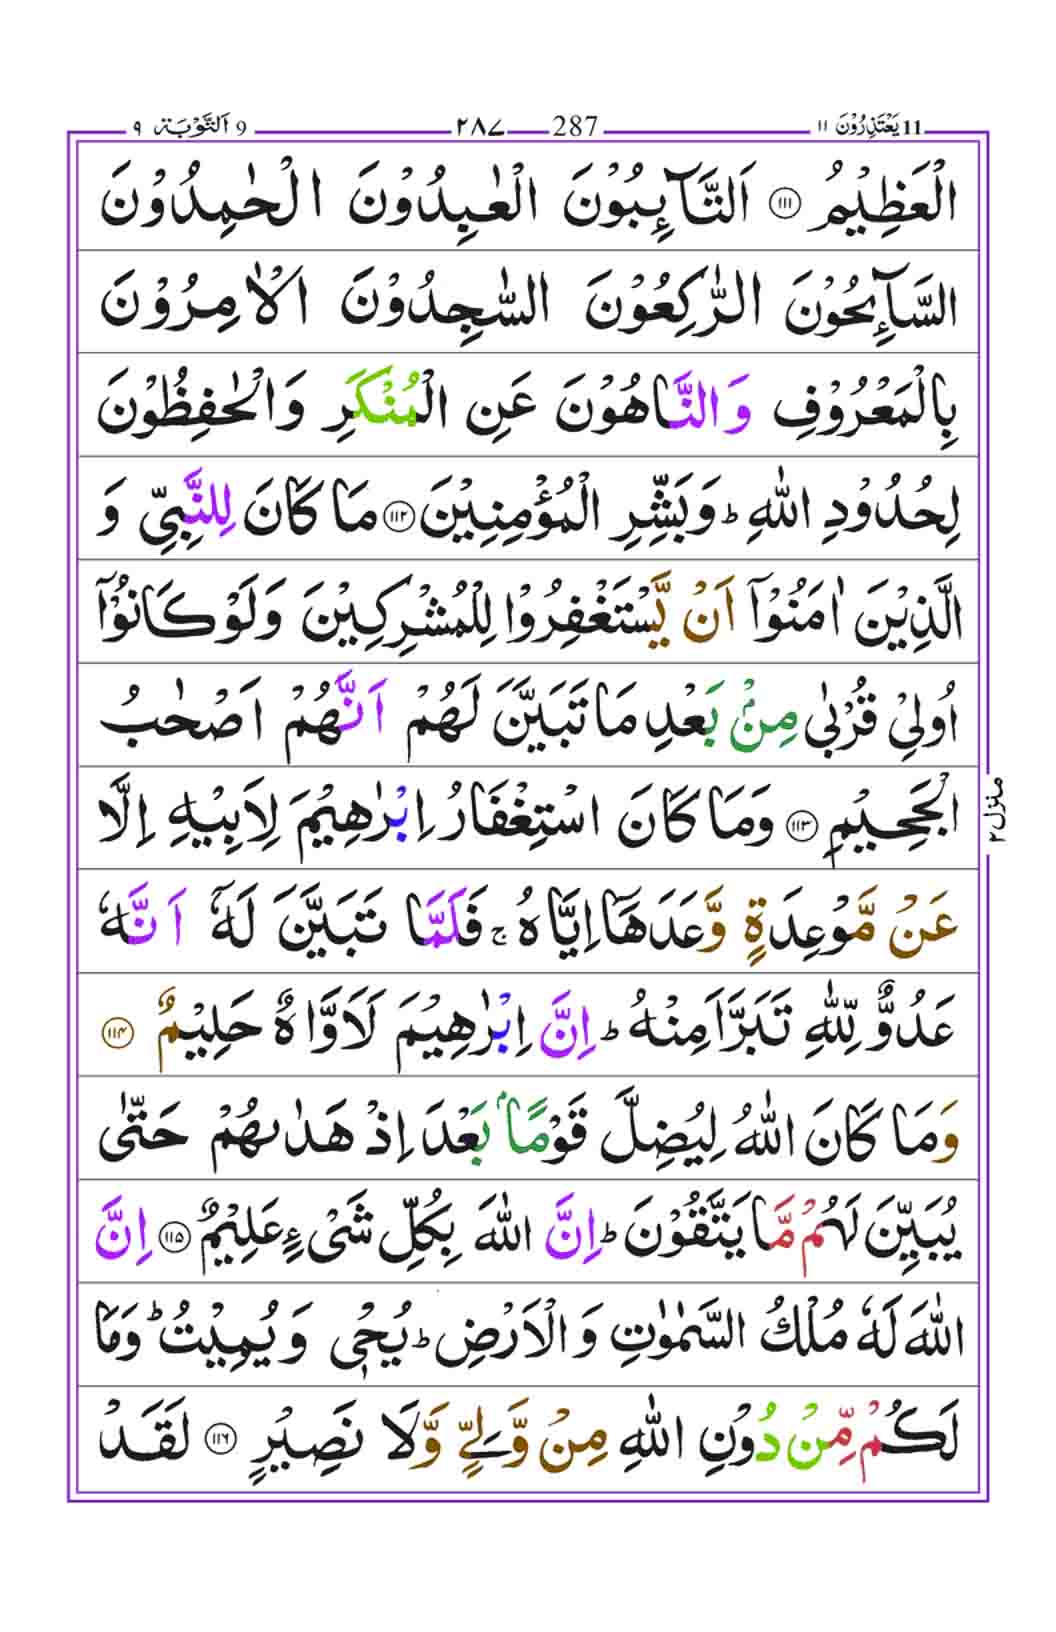 11 يَعْتَذِرُوْنَ ١١ 287 ٢٨٧ 9 اَلتَّوْبَة ٩
الْعَظِيْمُ ۝١١١ اَلتَّآىِٕبُوْنَ الْعٰبِدُوْنَ الْحٰمِدُوْنَ
السَّآىِٕحُوْنَ الرّٰكِعُوْنَ السّٰجِدُوْنَ الْاٰمِرُوْنَ
بِالْمَعْرُوْفِ وَالنَّاهُوْنَ عَنِ الْمُنْكَرِ وَالْحٰفِظُوْنَ
لِحُدُوْدِ اللّٰهِ ؕ وَبَشِّرِ الْمُؤْمِنِيْنَ ۝١١٢ مَا كَانَ لِلنَّبِيِّ وَ
الَّذِيْنَ اٰمَنُوْۤا اَنْ يَّسْتَغْفِرُوْا لِلْمُشْرِكِيْنَ وَلَوْ كَانُوْۤا
اُولِيْ قُرْبٰى مِنْۢ بَعْدِ مَا تَبَيَّنَ لَهُمْ اَنَّهُمْ اَصْحٰبُ
الْجَحِيْمِ ۝١١٣ وَمَا كَانَ اسْتِغْفَارُ اِبْرٰهِيْمَ لِاَبِيْهِ اِلَّا
عَنْ مَّوْعِدَةٍ وَّعَدَهَاۤ اِيَّاهُ ۚ فَلَمَّا تَبَيَّنَ لَهٗۤ اَنَّهٗ
عَدُوٌّ لِّلّٰهِ تَبَرَّاَ مِنْهُ ؕ اِنَّ اِبْرٰهِيْمَ لَاَوَّاهٌ حَلِيْمٌ ۝١١٤
وَمَا كَانَ اللّٰهُ لِيُضِلَّ قَوْمًاۢ بَعْدَ اِذْ هَدٰىهُمْ حَتّٰى
يُبَيِّنَ لَهُمْ مَّا يَتَّقُوْنَ ؕ اِنَّ اللّٰهَ بِكُلِّ شَيْءٍ عَلِيْمٌ ۝١١٥ اِنَّ
اللّٰهَ لَهٗ مُلْكُ السَّمٰوٰتِ وَالْاَرْضِ ؕ يُحْيٖ وَيُمِيْتُ ؕ وَمَا
لَكُمْ مِّنْ دُوْنِ اللّٰهِ مِنْ وَّلِيٍّ وَّلَا نَصِيْرٍ ۝١١٦ لَقَدْ
منزل ٢